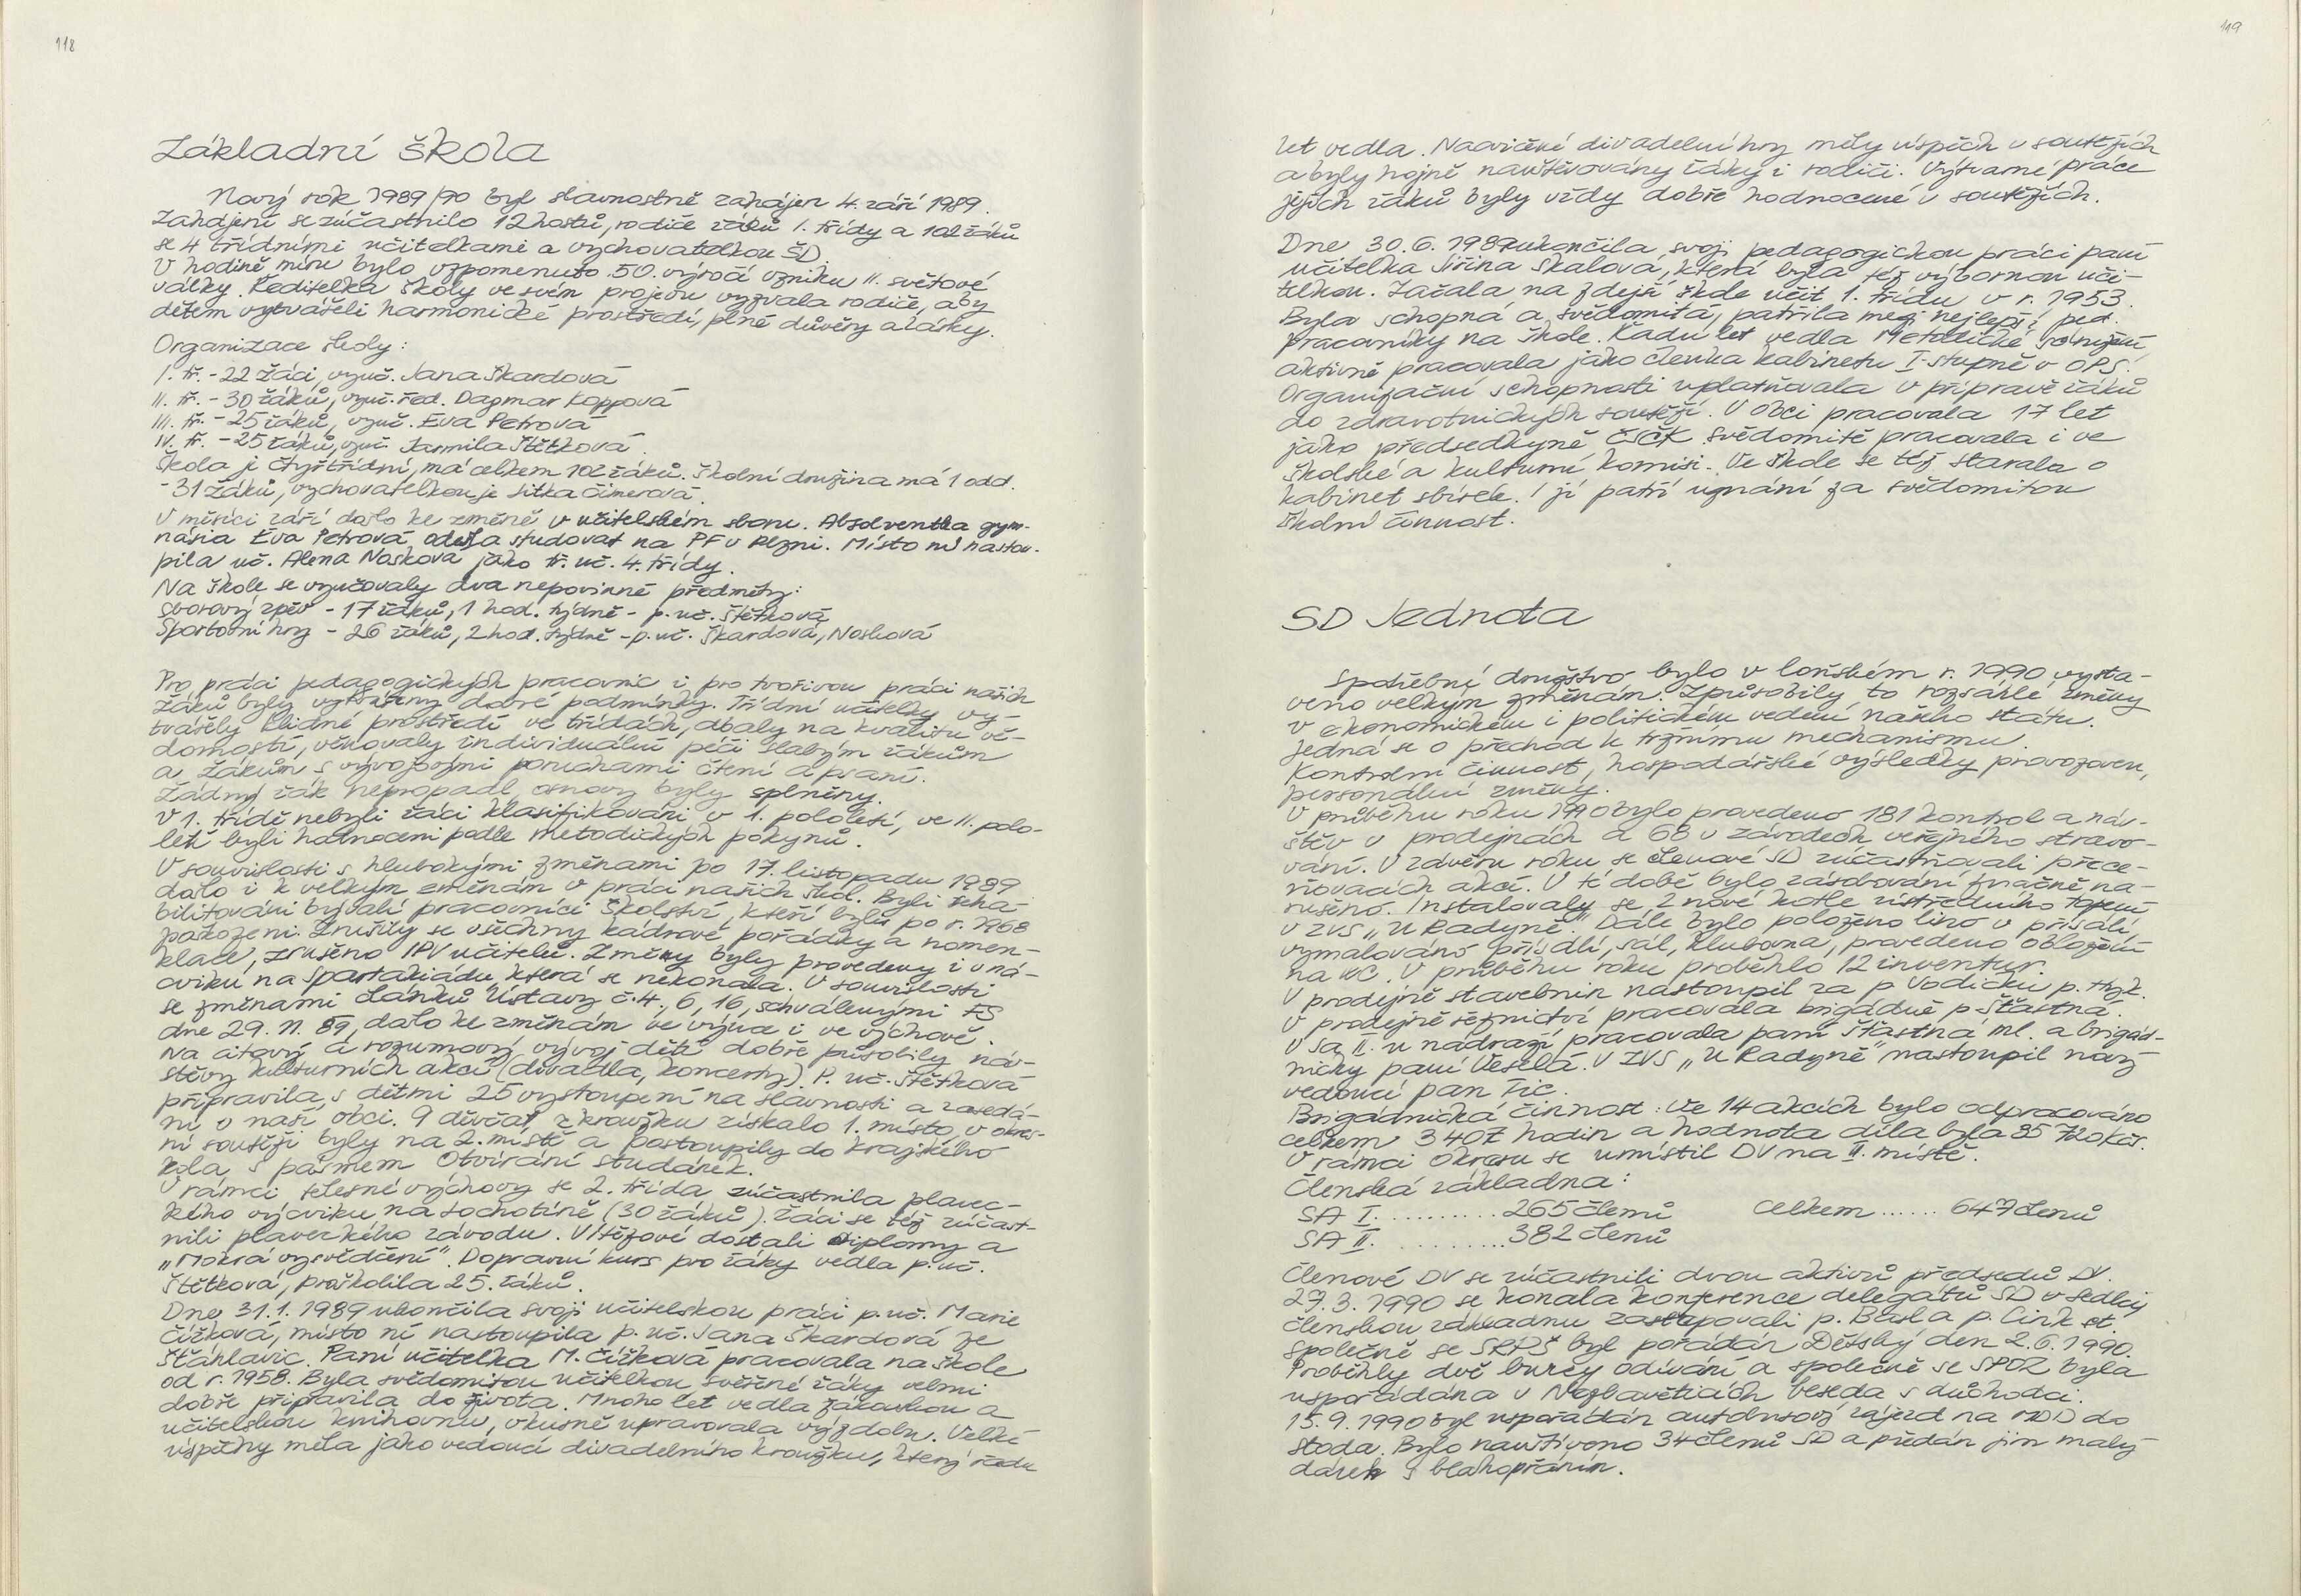 118
Základní škola
Nový rok 1989/90 byl slavnostně zahájen 4. září 1989.
Zahájení se zúčastnilo 12 hostů, rodiče žáků 1. třídy a 102 žáků
se 4 třídními učitelkami a vychovatelkou ŠD.
V hodině míru bylo vzpomenuto 50. výročí vzniku II. světové
války. Ředitelka školy ve svém projevu vyzvala rodiče, aby
dětem vytvářeli harmonické prostředí, plné důvěry a lásky.
Organizace školy:
I. tř. - 22 žáci, vyuč. Jana Škardová
II. tř. - 30 žáků, vyuč. řed. Dagmar Koppová
III. tř. - 25 žáků, vyuč. Eva Petrová
IV. tř. - 25 žáků, vyuč. Jarmila Štětková.
Škola je čtyřtřídní, má celkem 102 žáků. Školní družina má 1 odd.
- 31 žáků, vychovatelkou je Jitka Čimerová.
V měsíci září došlo ke změně v učitelském sboru. Absolventka gym-
násia Eva Petrová odešla studovat na PF v Plzni. Místo ní nastou-
pila uč. Alena Nosková jako tř. uč. 4. třídy.
Na škole se vyučovaly dva nepovinné předměty:
Sborový zpěv - 17 žáků, 1 hod. týdně - p. uč. Štětková
Sportovní hry - 26 žáků, 2 hod. týdně - p. uč. Škardová, Nosková
Pro práci pedagogických pracovnic i pro tvořivou práci našich
žáků byly vytvořeny dobré podmínky. Třídní učitelky vy-
tvářely klidné prostředí ve třídách, dbaly na kvalitu vě-
domostí, věnovaly individuální péči slabým žákům
a žákům s vývojovými poruchami čtení a psaní.
Žádný žák nepropadl, osnovy byly splněny.
V 1. třídě nebyli žáci klasifikováni v 1. pololetí, ve II. polo-
letí byli hodnoceni podle metodických pokynů.
V souvislosti s hlubokými změnami po 17. listopadu 1989
došlo i k velkým změnám v práci našich škol. Byli reha-
bilitováni bývalí pracovníci školství, kteří byli po r. 1968
poškozeni. Zrušily se všechny kádrové pořádky a nomen-
klace, zrušeno IPV učitelů. Změny byly provedeny i v ná-
cviku na spartakiádu, která se nekonala. V souvislosti
se změnami článků Ústavy č. 4, 6, 16, schválenými FS
dne 29. 11. 89, došlo ke změnám ve výuce i ve výchově.
Na citový a rozumový vývoj dětí dobře působily náv-
štěvy kulturních akcí (divadla, koncerty). P. uč. Štětková
připravila s dětmi 25 vystoupení na slavnosti a zasedá-
ní v naší obci. 9 děvčat z kroužku získalo 1. místo v okres-
ní soutěži byly na 2. místě a postoupily do krajského
kola s pásmem Otvírání studánek.
V rámci tělesné výchovy se 2. třída zúčastnila plavec-
kého výcviku na Lochotíně (30 žáků). Žáci se též zúčast-
nili plaveckého závodu. Vítězové dostali diplomy a
„Mokrá vysvědčení". Dopravní kurs pro žáky vedla p. uč.
Štětková, proškolila 25. žáků.
Dne 31.1. 1989 ukončila svoji učitelskou práci p. uč. Marie
Čížková, místo ní nastoupila p. uč. Jana Škardová ze
Šťáhlavic. Paní učitelka M. Čížková pracovala na škole
od r. 1958. Byla svědomitou učitelkou svěřené žáky velmi
dobře připravila do života. Mnoho let vedla žákovskou a
učitelskou knihovnu, vkusně upravovala výzdobu. Velké
úspěchy měla jako vedoucí divadelního kroužku, který řadu
119
let vedla. Nacvičené divadelní hry měly úspěch v soutěžích
a byly hojně navštěvovány žáky i rodiči. Výtvarné práce
jejích žáků byly vždy dobře hodnocené v soutěžích.
Dne 30. 6. 1989 ukončila svoji pedagogickou práci paní
učitelka Jiřina Skalová, která byla též výbornou uči-
telkou. Začala na zdejší škole učit 1. třídu v r. 1953.
Byla schopná a svědomitá, patřila mezi nejlepší ped.
pracovníky na škole. Řadu let vedla Metodické sdružení
aktivně pracovala jako členka kabinetu I. stupně v OPS.
Organizační schopnosti uplatňovala v přípravě žáků
do zdravotnických soutěží. V obci pracovala 17 let
jako předsedkyně ČSČK svědomitě pracovala i ve
školské a kulturní komisi. Ve škole se též starala o
kabinet sbírek. I jí patří uznání za svědomitou
školní činnost.
SD Jednota
Spotřební družstvo bylo v loňském r. 1990 vysta-
veno velkým změnám. Způsobily to rozsáhlé změny
v ekonomickém i politickém vedení našeho státu.
Jedná se o přechod k tržnímu mechanismu.
Kontrolní činnost, hospodářské výsledky provozoven,
personální změny.
V průběhu roku 1990 bylo provedeno 181 kontrol a náv-
štěv v prodejnách a 68 v závodech veřejného stravo-
vání. V závěru roku se členové SD zúčastňovali přece-
ňovacích akcí. V té době bylo zásobování značně na-
rušeno. Instalovaly se 2 nové kotle ústředního topení
v ZVS „U Radyně". Dále bylo položeno lino v přísálí,
vymalováno přísálí, sál, klubovna, provedeno obložení
na WC. V průběhu roku proběhlo 12 inventur.
V prodejně stavebnin nastoupil za p. Vodičku p.
V prodejně řeznictví pracovala brigádně p. Šťastná.
V SA II. u nádraží pracovala paní Šťastná ml. a brigád-
nicky paní Veselá. V ZVS „U Radyně" nastoupil nový
vedoucí pan Fic.
Brigádnická činnost: Ve 14 akcích bylo odpracováno
celkem 3 407 hodin a hodnota díla byla 85 720 Kčs.
V rámci okresu se umístil DV na II. místě.
Členská základna:
SA I. .......... 265 členů celkem ...... 647 členů
SA II. .......... 382 členů
Členové DV se zúčastnili dvou aktivů předsedů DV.
29. 3. 1990 se konala konference delegátů SD v Sedlci
členskou základnu zastupovali p. Basl a p. Cink st.
Společně se SRPŠ byl pořádán Dětský den 2. 6. 1990.
Proběhly dvě burzy odívání a společně se SPOZ byla
uspořádána v Nezbavěticích beseda s důchodci.
15. 9. 1990 byl uspořádán autobusový zájezd na MDD do
Stoda. Bylo navštíveno 34 členů SD a předán jim malý
dárek s blahopřáním.